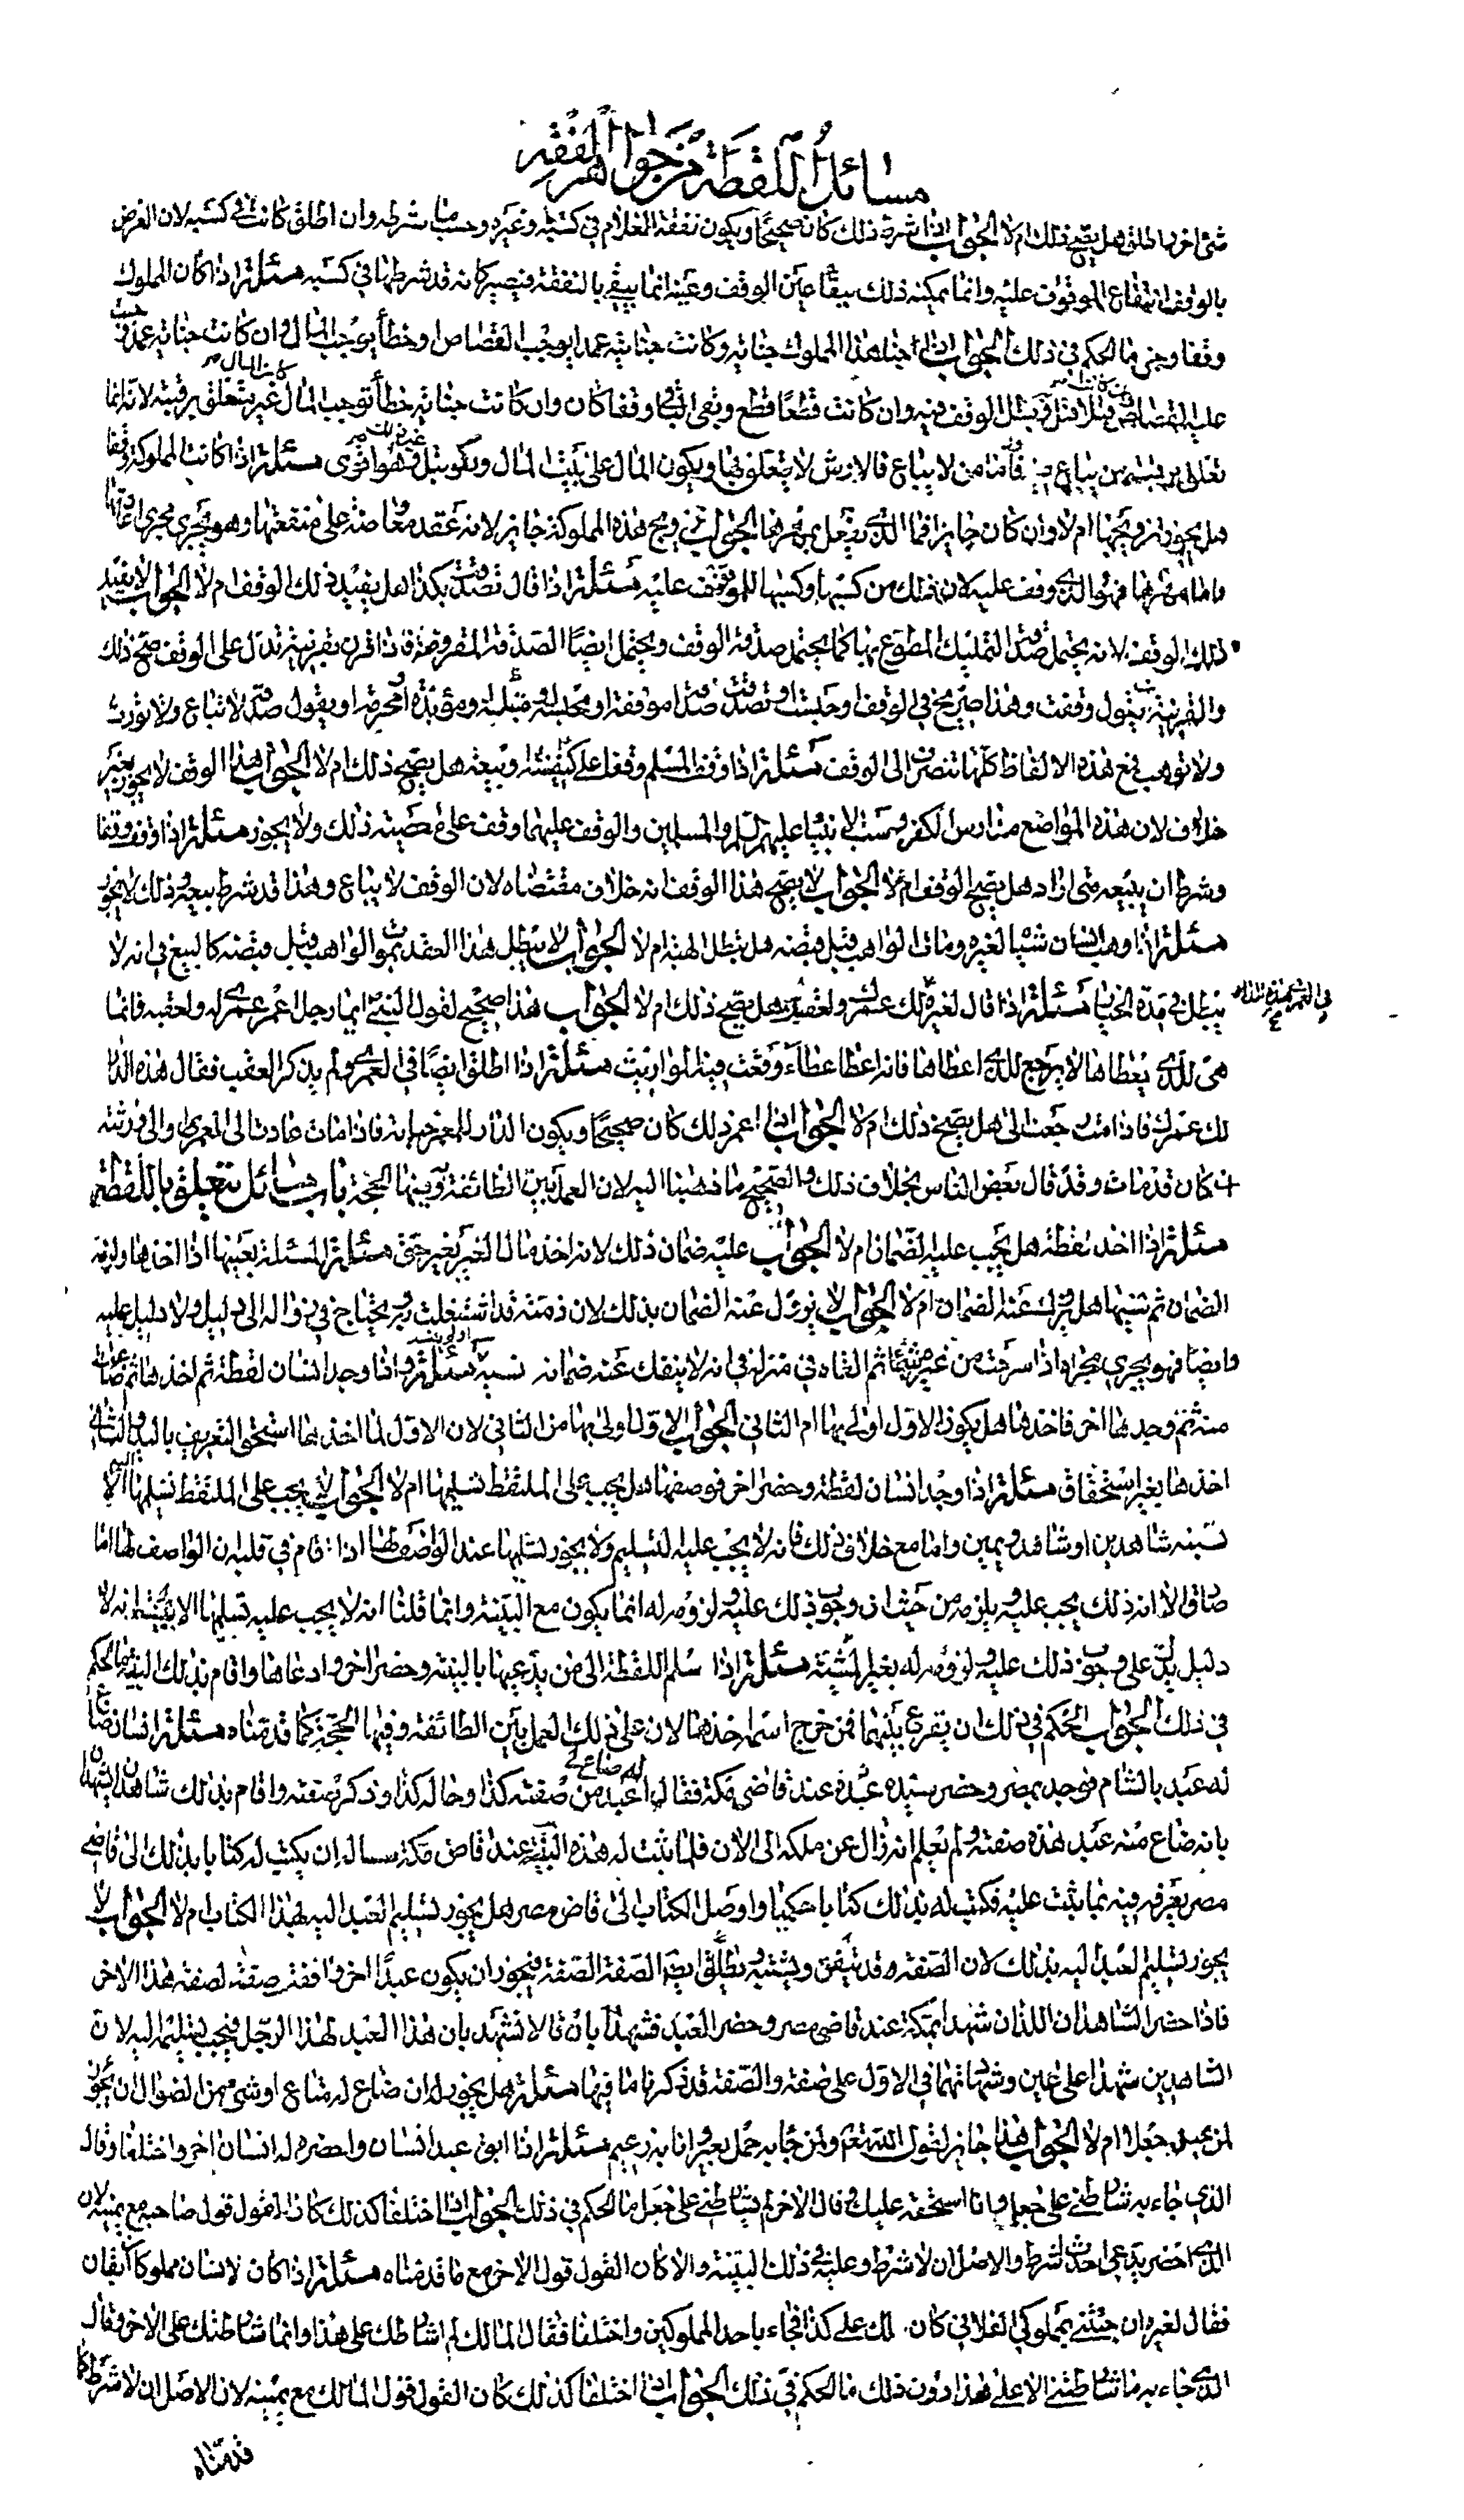 مسائل اللقطة من جواهر الفقه
شئ اخر او اطلق هل يصح ذلك ام لا الجواب اذا شرط ذلك كان صحيحا ويكون نفقة الغلام في كسبه وغيره وحسب ما شرطه وان اطلق كانت في كسبه لان الغرض
بالوقف انتفاع الموقوف عليه وانما يمكنه ذلك ببقاء عين الوقف وعينه انما يبقى بالنفقة فيصير كانه قد شرطها في كسبه مسئلة اذا كان المملوك
وقفا وجنى ما الحكم في ذلك الجواب اذا جنى هذا المملوك جناية وكانت جنايته عمدا يوجب القصاص او خطأ يوجب المال فان كانت جنايته عمدا
عليه القصاص فان كانت قتلا قتل وبطل الوقف فيه وان كانت قطعا قطع وبقى الباقي وقفا كان وان كانت جناية خطأ توجب المال كان المال غير متعلق برقبته لانه انما
تعلق برقبة من يباع فيه فاما من لا يباع فالارش لا يتعلق بها ويكون المال على بيت المال وقيل غير ذلك وهو اقوى مسئلة اذا كانت المملوكة وقفا
هل يجوز تزويجها ام لا وان كان جايزا فما الذى يفعل بمهرها الجواب تزويج هذه المملوكة جايز لانه عقد معاوضة على منفعتها وهو يجرى مجرى اجارتها
فاما مهرها فهو للذى وقف عليه لان ذلك من كسبها وكسبها للموقوف عليه مسئلة اذا قال تصدقت بكذا هل يفيد ذلك الوقف ام لا الجواب لا يفيد
ذلك الوقف لانه يحتمل صدقة التمليك المتطوع بها كما يحتمل صدقة الوقف ويحتمل ايضا الصدقة المفروضة فاذا قرن بقرينة تدل على الوقف صح ذلك
والقرينة بقول وقفت وهذا صريح في الوقف او حبست او تصدقت صدقة موقوفة او محبسة او مسبلة ومؤبدة او محرمة او يقول صدقة لا تباع ولا تورث
ولا توهب فجميع هذه الالفاظ كلها تنصرف الى الوقف مسئلة اذا وقف المسلم وقفا على كنيسة او بيعة هل يصح ذلك ام لا الجواب هذا الوقف لا يجوز بغير
خلاف لان هذه المواضع مدارس الكفر وسب الانبياء عليهم السلم والمسلمين والوقف عليها وقف على معصية ذلك ولا يجوز مسئلة اذا وقف وقفا
وشرط ان يبيعه متى اراد هل يصح الوقف ام لا الجواب لا يصح هذا الوقف لانه خلاف مقتضاه لان الوقف لا يباع وهذا قد شرط بيعه وذلك لا يجوز
مسئلة اذا وهب انسان شيئا لغيره ومات الواهب قبل قبضه هل تبطل الهبة ام لا الجواب لا يبطل هذا العقد بموت الواهب قبل قبضه كالبيع في انه لا
يبطل في مدة الخيار مسئلة اذا قال لغيره لك عمرك ولعقبك هل يصح ذلك ام لا الجواب هذا صحيح لقول النبي ايما رجل اعمر عمرى له ولعقبه فانما
هى للذى يعطاها لا يرجع للذى اعطاها فانه اعطا عطاء وقعت فيه المواريث مسئلة اذا اطلق ايضا في العمرى ولم يذكر العقب فقال هذه الدار
لك عمرك فاذا مت رجعت الى هل يصح ذلك ام لا الجواب اذا اعمر ذلك كان صحيحا ويكون الدار للمعمر حياته فاذا مات عادت الى المعمر او الى ورثته
ان كان قد مات وقد قال بعض الناس بخلاف ذلك والصحيح ما ذهبنا اليه لان العمل بين الطائفة وفيها الحجة باب مسائل تتعلق باللقطة
مسئلة اذا اخذ لقطة هل يجب عليه الضمان ام لا الجواب عليه ضمان ذلك لانه اخذ مال الغير بغير حق مسئلة المسئلة بعينها اذا اخذها ولزمه
الضمان ثم ردها هل يزول عنه الضمان ام لا الجواب لا يزول عنه الضمان بذلك لان ذمته قد اشتغلت به ويحتاج في زواله الى دليل ولا دليل عليه
وايضا فهو يجري مجرى اذا سرقت من غيره شيئا ثم القاه في منزله في انه لا ينفك عنه ضمانه مسئلة واذا وجد انسان لقطة ثم اخذها ثم ضاعت
منه ثم وجدها اخر فاخذها هل يكون الاول اولى بها ام الثاني الجواب الاول اولى بها من الثاني لان الاول لما اخذها استحق التعريف باليد والثاني
اخذها بغير استحقاق مسئلة اذا وجد انسان لقطة وحضر اخر فوصفها هل يجب على الملتقط تسليمها ام لا الجواب لا يجب على الملتقط تسليمها اليه الا
ببينة شاهدين او شاهد ويمين واما مع خلاف ذلك فانه لا يجب عليه التسليم ولا يجوز تسليمها عند الواصف لها اذا قام في قلبه ان الواصف لها اما
صادق الا انه ذلك يجب عليه ويلزمه من حيث ان وجوب ذلك عليه ولزومه له انما يكون مع البينة وانما قلنا انه لا يجب عليه تسليمها الا ببينة لانه لا
دليل يدل على وجوب ذلك عليه ولزومه له بغير البينة مسئلة اذا سلم اللقطة الى من يدعيها بالبينة وحضر اخر وادعاها واقام بذلك البينة ما الحكم
في ذلك الجواب الحكم في ذلك ان يقرع بينهما فمن خرج اسمه اخذها لان على ذلك العمل بين الطائفة وفيها الحجة كما قدمناه مسئلة انسان ضاع
له عبد بالشام فوجد بمصر وحضر سيده عبده عند قاضى مكة فقال له ضاع لى عبد من صفته كذا وحاله كذا وذكر صفته واقام بذلك شاهدان شهدا
بانه ضاع منه عبد هذه صفته ولم يعلم انه زال عن ملكه الى الان فلما ثبت له هذه البينة عند قاضى مكة ساله ان يكتب له كتابا بذلك الى قاضى
مصر يعرفه فيه بما يثبت عليه فكتب له بذلك كتابا حكميا واوصل الكتاب الى قاضى مصر هل يجوز تسليم العبد اليه بهذا الكتاب ام لا الجواب لا
يجوز تسليم العبد اليه بذلك لان الصفة قد تتفق وتشتبه وتطابق ايضا الصفة الصفة فيجوز ان يكون عبدا اخر وافقت صفته لصفة هذا الاخر
فاذا حضر الشاهدان اللذان شهدا بمكة عند قاضى مصر وحضر العبد فشهدا بان قالا نشهد بان هذا العبد لهذا الرجل فيجب تسليمه اليه لان
الشاهدين شهدا على عين وشهادتهما في الاول على صفة والصفة قد ذكرنا ما فيها مسئلة هل يجوز لمن ضاع له متاع او شئ من الضوال ان يجعل
لمن يجيئه به جعلا ام لا الجواب هذا جايز لقول الله تعالى ولمن جاء به حمل بعير وانا به زعيم مسئلة اذا ابق عبد انسان واحضره له انسان اخر واختلفا وقال
الذى جاء به شارطتني على جعل وانا استحقه عليك وقال الاخر لم تشارطني على جعل ما الحكم في ذلك الجواب اذا اختلفا كذلك كان القول قول صاحبه مع يمينه لان
الذى احضره يدعى احداث شرط والاصل ان لا شرط وعليه في ذلك البينة والا كان القول قول الاخر مع ما قدمناه مسئلة اذا كان لانسان مملوكان ابقان
فقال لغيره ان جئتني بمملوكي الفلاني كان لك على كذا فجاء باحد المملوكين واختلفا فقال المالك لم اشارطك على هذا وانما شارطتك على الاخر وقال
الذى جاء به ما شارطتني الا على هذا دون ذلك ما الحكم في ذلك الجواب اذا اختلفا كذلك كان القول قول المالك مع يمينه لان الاصل ان لا شرط كما
قدمناه